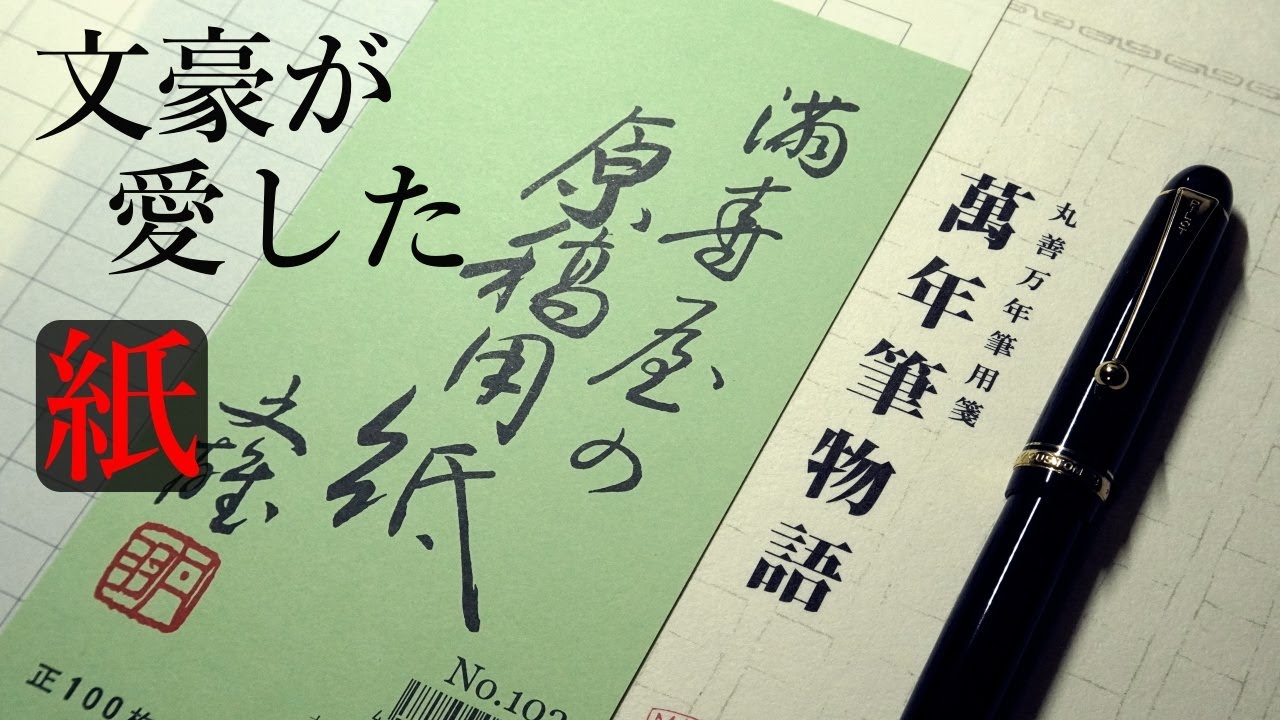 文豪が
愛した
紙
満寿屋の
原稿用紙
丸善万年筆用箋
萬年筆物語
PILOT
正100枚
No.102